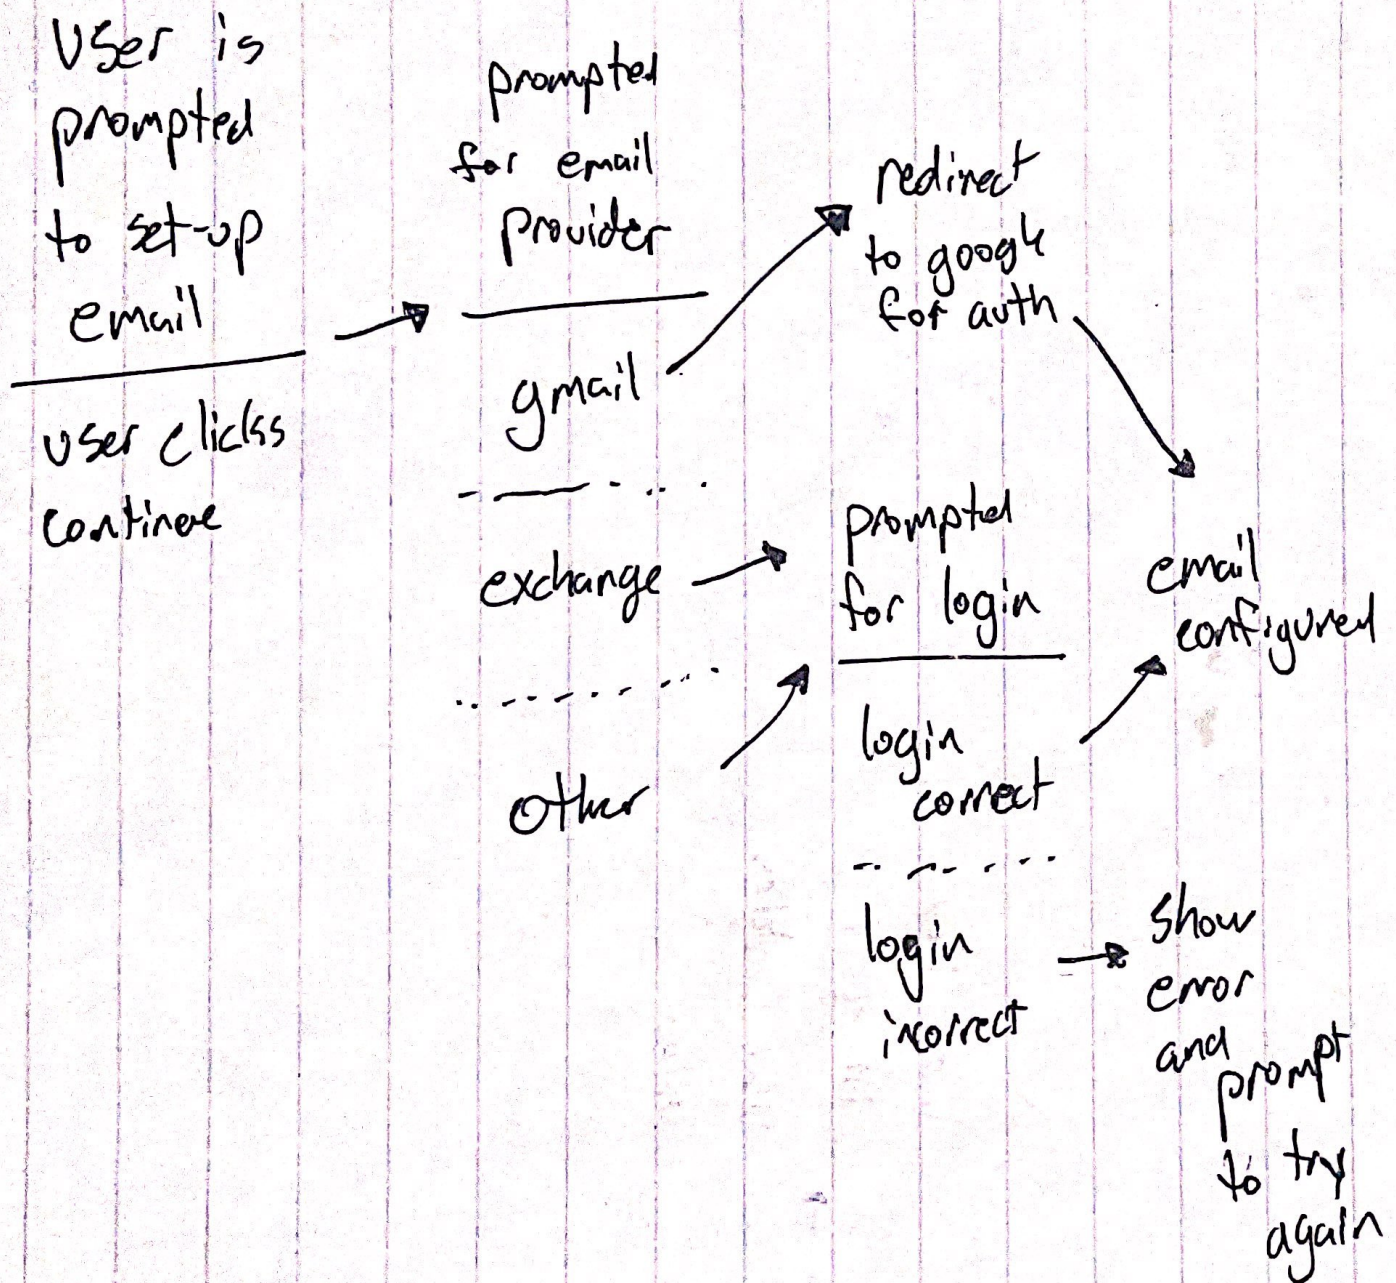 User is
prompted
to set-up
email
user clicks
continue
prompted
for email
provider
gmail
exchange
other
redirect
to google
for auth
prompted
for login
login
correct
login
incorrect
email
configured
show
error
and
prompt
to try
again